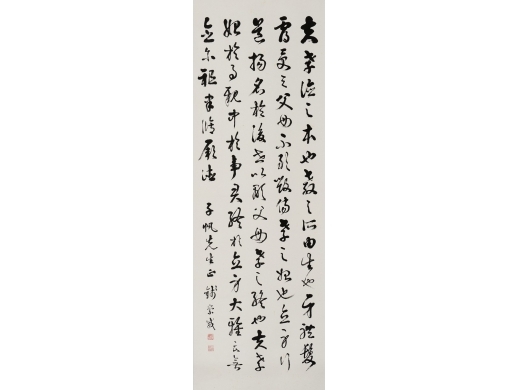 夫孝德之本也教之所由生也身體髮
膚受之父母不敢毀傷孝之始也立身行
道揚名於後世以顯父母孝之終也夫孝
始於事親中於事君終於立身大雅云無
念爾祖聿脩厥德
子帆先生正 錢崇威